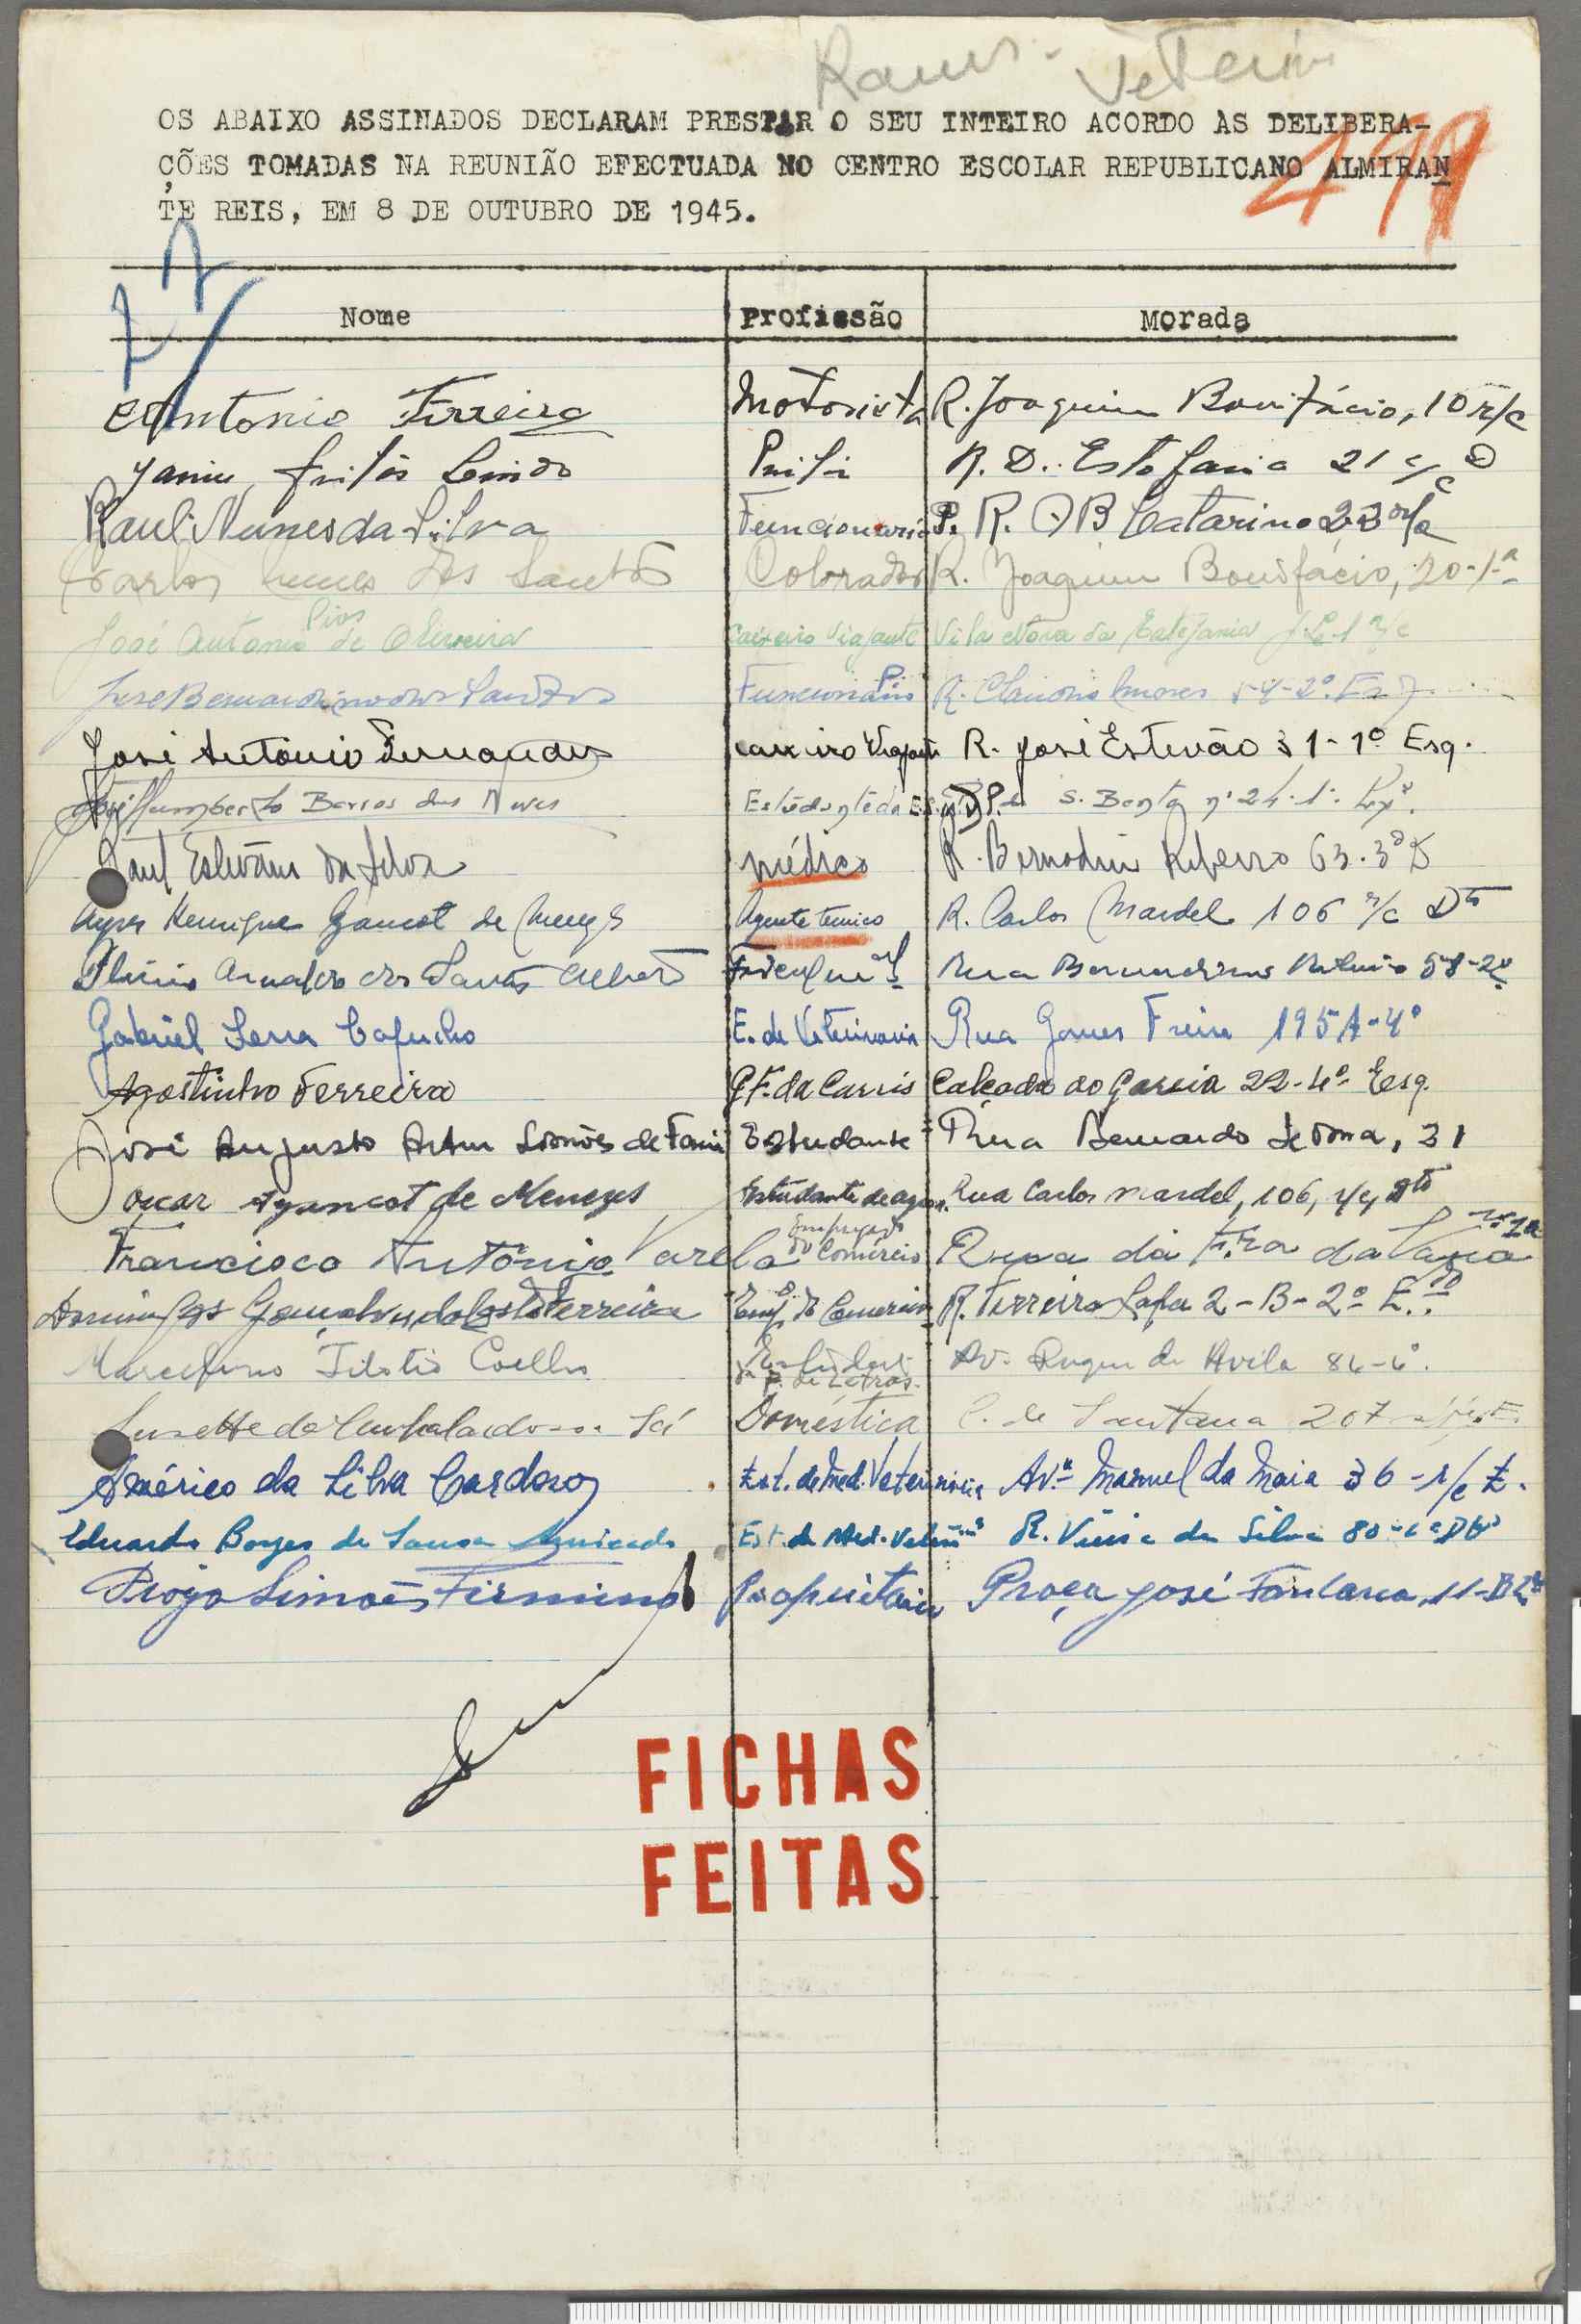 OS ABAIXO ASSINADOS DECLARAM PRESTAR O SEU INTEIRO ACORDO AS DELIBERA-
ÇÕES TOMADAS NA REUNIÃO EFECTUADA NO CENTRO ESCOLAR REPUBLICANO ALMIRAN
TE REIS, EM 8 DE OUTUBRO DE 1945.
Nome Profissão Morada
Antonio Ferreira Motorista R. Joaquim Bonifácio, 10 r/c
R. D. Estefania 21 r/c D
Raul Nunes da Silva Funcionario P. R. D B Catarino 23 r/c
Carlos dos Santos Colorador R. Joaquim Bonifácio, 20-1º
José António Pires de Oliveira Caixeiro Viajante Vila Nova da Estefania 1 r/c
José Bernardino dos Santos Funcionário P. R. Claudio Nunes 54-2º Esq
José António Fernandes caixeiro Viajante R. José Estevão 31-1º Esq.
José Humberto Barros das Neves Estudante da S. Bento nº 24-1º
Raul Estevão da Silva médico R. Bernardim Ribeiro 63-3º D
Henrique Gancot de Agente tecnico R. Carlos Mardel 106 r/c Dto
dos Santos Rua Bernardim Ribeiro 58-2º
Gabriel Serra Capucho E. de Veterinaria Rua Gomes Freire 195A-4º
Agostinho Ferreira G.F. da Carris Calçada do Garcia 22-4º Esq.
José Augusto Artur Simões de Faria Estudante Rua Bernardo Lima, 31
Oscar Gancot de Menezes Estudante de agron. Rua Carlos Mardel, 106, r/c Dto
Francisco António Varela Empregado do Comércio
Domingos Gonçalves da Costa Ferreira Emp. do Comercio R. Ferreira Lapa 2-B-2º E.
Marcelino Coelho Estudante da F. de Letras. Av. Duque de Avila 84-4º.
Doméstica C. de Santana 207
Américo da Silva Cardoso Est. de Med. Veterinária Av.ª Manuel da Maia 36-r/c E.
Eduardo Borges de Sousa Est. de Med. Veterin. R. Vieira da Silva 80
Simões Firmino Proprietario Praça José Fontana, 11-B
FICHAS
FEITAS